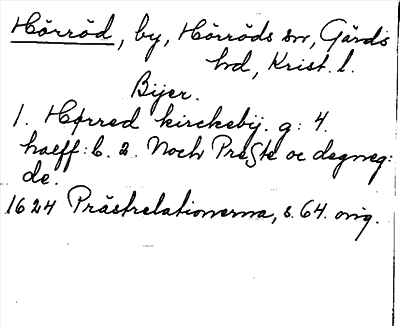 Hörröd, by, Hörröds sn, Gärds
hd, Krist. l.
Bijer.
1. Hørred kirckebij. g: 4.
haeff: b. 2. Noch Preste oc degneg:
de.
1624 Prästrelationerna, s. 64. orig.